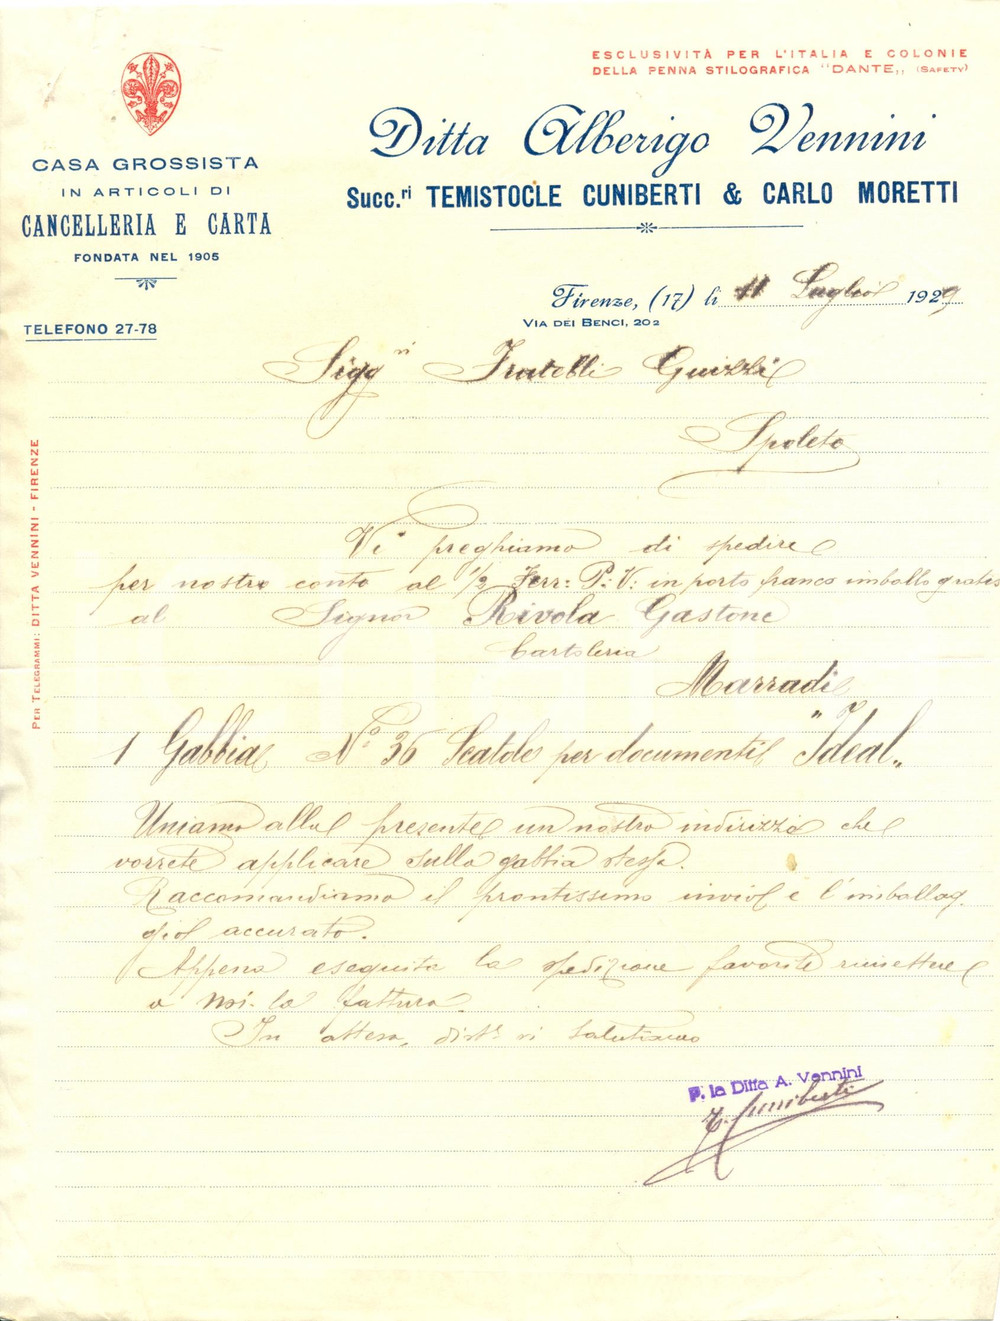 ESCLUSIVITÀ PER L'ITALIA E COLONIE
DELLA PENNA STILOGRAFICA "DANTE„ (SAFETY)
Ditta Alberigo Vennini
Succ.ri TEMISTOCLE CUNIBERTI & CARLO MORETTI
CASA GROSSISTA
IN ARTICOLI DI
CANCELLERIA E CARTA
FONDATA NEL 1905
TELEFONO 27-78
Firenze, (17) lì 11 Luglio 1929
VIA DEI BENCI, 202
PER TELEGRAMMI: DITTA VENNINI - FIRENZE
Sigg.ri Fratelli Guizzi
Spoleto
Vi preghiamo di spedire
per nostro conto al 1/2 Ferr: P: V: in porto franco imballo gratis
al Signor Rivola Gastone
Cartoleria
Marradi
1 Gabbia N.o 36 Scatole per documenti "Ideal„
Uniamo alla presente un nostro indirizzo che
vorrete applicare sulla gabbia stessa.
Raccomandiamo il prontissimo invio e l'imballag
gio accurato.
Appena eseguita la spedizione favorite rimettere
a noi la fattura.
In attesa, dist. vi salutiamo
P. la Ditta A. Vennini
T. Cuniberti